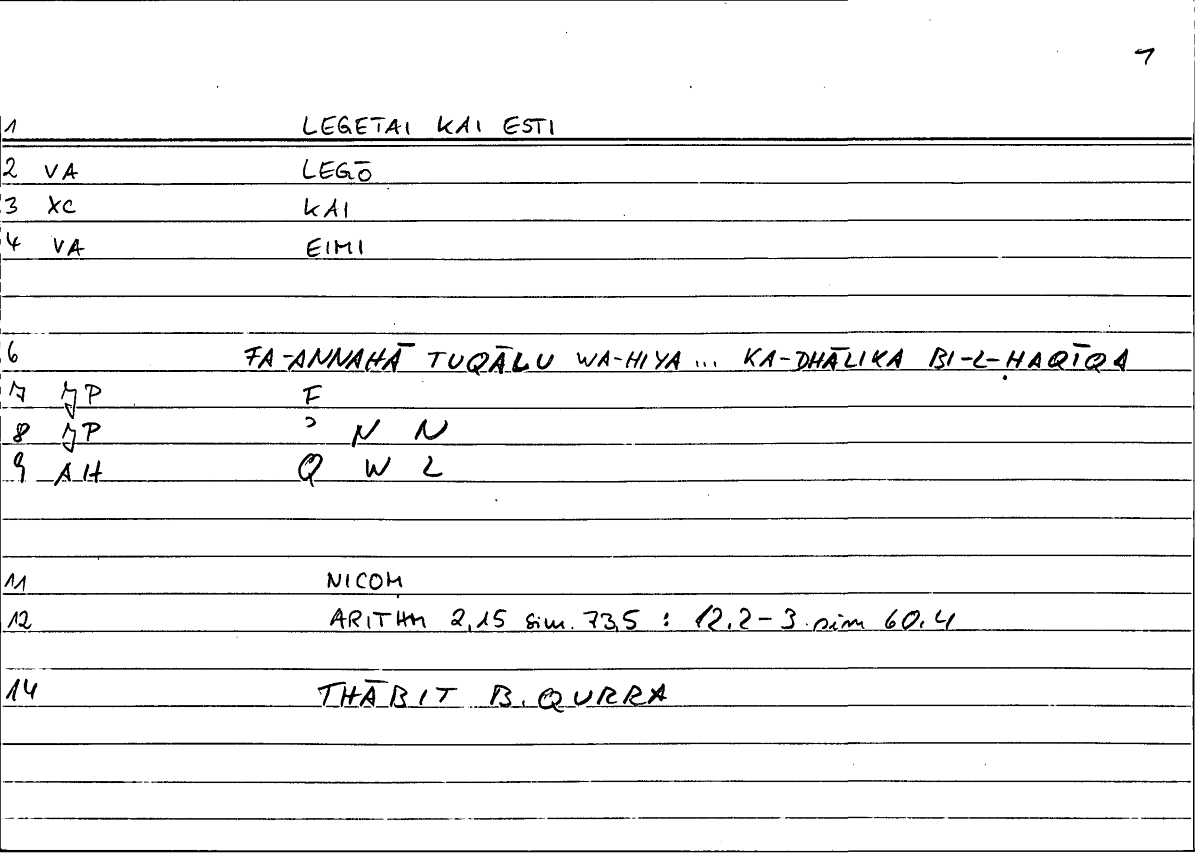 1
1 LEGETAI KAI ESTI
2 VA LEGŌ
3 XC KAI
4 VA EIMI
6 FA-ANNAHĀ TUQĀLU WA-HIYA ... KA-DHĀLIKA BI-L-ḤAQĪQA
7 JP F
8 JP ʾ N N
9 AH Q W L
11 NICOM
12 ARITHM 2,15 sim. 73,5 : 12.2-3 sim 60.4
14 THĀBIT B. QURRA